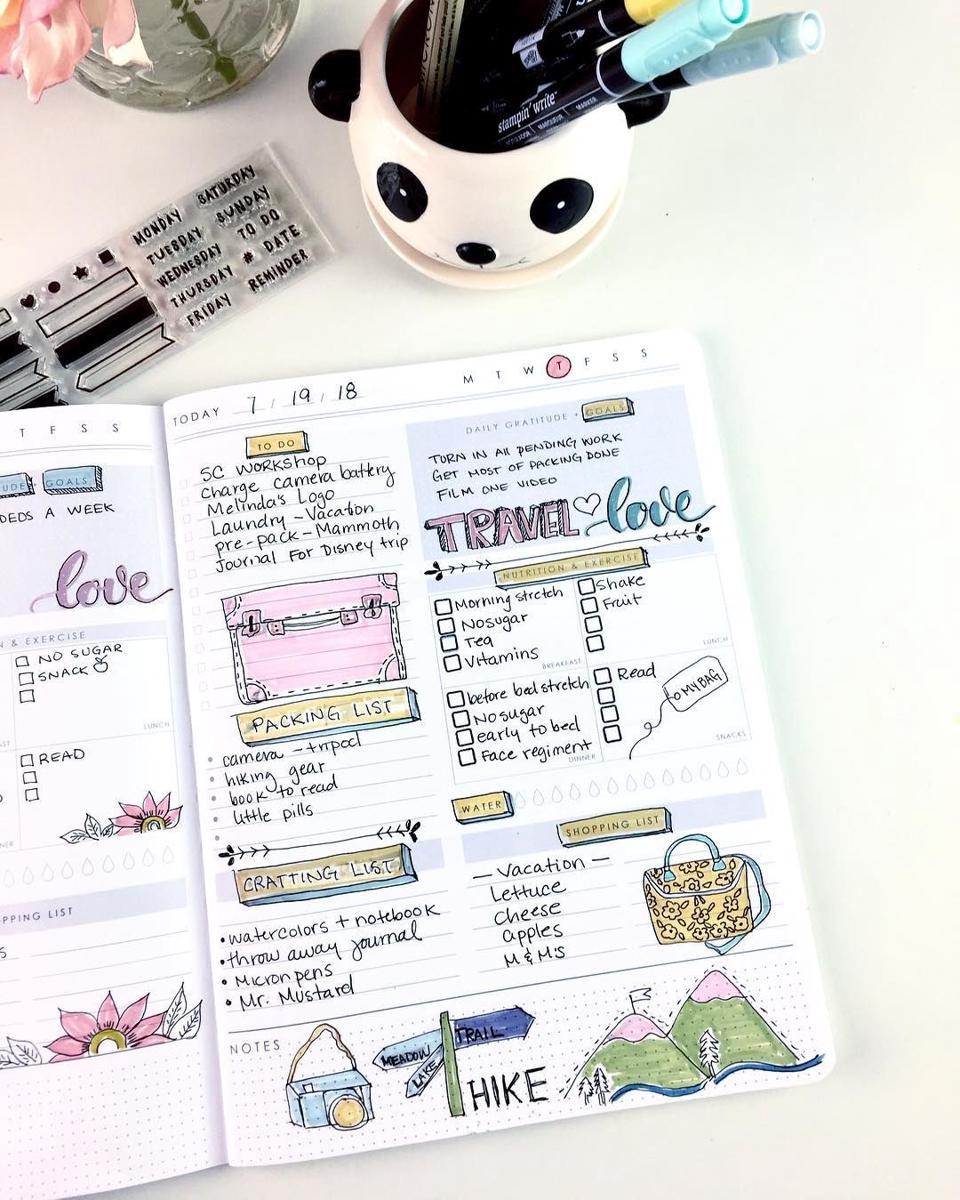 stampin' write™
MARKER
MONDAY SATURDAY
TUESDAY SUNDAY
WEDNESDAY TO DO
THURSDAY # DATE
FRIDAY REMINDER
T F S S
UDE GOALS
DEDS A WEEK
love
N & EXERCISE
NO SUGAR
SNACK
LUNCH
READ
PPING LIST
S
TODAY 7 / 19 / 18
M T W T F S S
TO DO
SC WORKSHOP
Charge camera battery
Melinda's Logo
Laundry - Vacation
pre-pack - Mammoth
Journal For Disney trip
PACKING LIST
camera - tripod
hiking gear
book to read
little pills
CRATTING LIST
• watercolors + notebook
• throw away journal
• Micron pens
• Mr. Mustard
DAILY GRATITUDE + GOALS
TURN IN All PENDING WORK
GET MOST OF PACKING DONE
FILM ONE VIDEO
TRAVEL love
NUTRITION & EXERCISE
Morning stretch
No sugar
Tea
Vitamins
BREAKFAST
Shake
Fruit
LUNCH
before bed stretch
No sugar
early to bed
Face regiment
DINNER
Read
to MY BAG
SNACKS
WATER
SHOPPING LIST
— Vacation —
Lettuce
Cheese
apples
M & M'S
NOTES
MEADOW
TRAIL
LAKE
HIKE